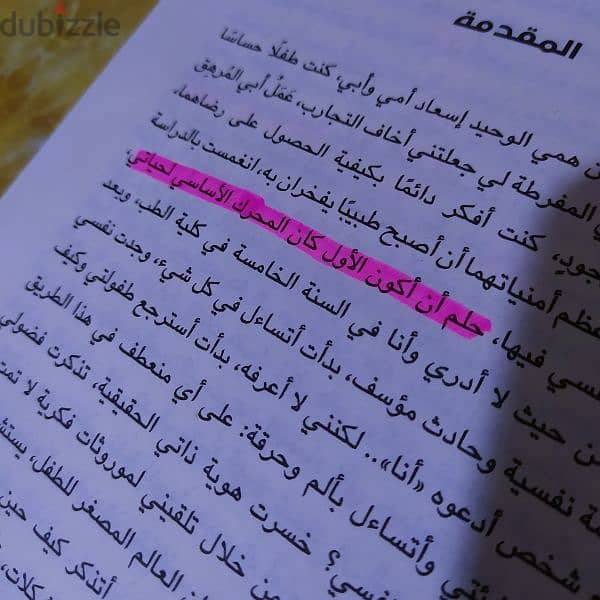 dubizzle
المقدمة
همي الوحيد إسعاد أمي وأبي، كنت طفلًا حساسًا
المفرطة لي جعلتني أخاف التجارب، عَمَلُ أبي المُرهِق
كنت أفكر دائمًا بكيفية الحصول على رضاهما،
أمنياتهما أن أصبح طبيبًا يفخران به، انغمست بالدراسة
فيها، حلم أن أكون الأول كان المحرك الأساسي لحياتي،
حيث لا أدري وأنا في السنة الخامسة في كلية الطب، وبعد
نفسية وحادث مؤسف، بدأت أتساءل في كل شيء، وجدت نفسي
شخص أدعوه «أنا».. لكنني لا أعرفه، بدأت أسترجع طفولتي وكيف
وأتساءل بألم وحرقة: على أي منعطف في هذا الطريق
خسرت هوية ذاتي الحقيقية، تذكرت فضولي
من خلال تلقيني لموروثات فكرية لا
العالم المصغر للطفل،
أتذكر كيف حين